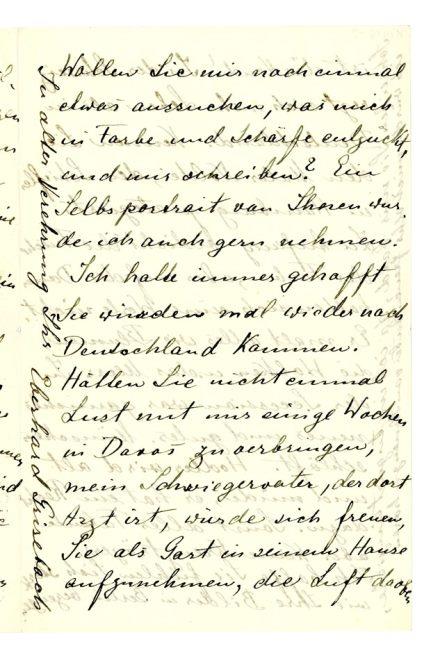 Wollen Sie mir noch einmal
etwas aussuchen, was mich
in Farbe und Schärfe entzückt,
und mir schreiben? Ein
Selbsportrait von Ihnen wür-
de ich auch gern nehmen.
Ich hatte immer gehofft
Sie würden mal wieder nach
Deutschland kommen.
Hätten Sie nicht einmal
Lust mit mir einige Wochen
in Davos zu verbringen,
mein Schwiegervater, der dort
Arzt ist, würde sich freuen,
Sie als Gast in seinem Hause
aufzunehmen, die Luft da oben
In alter Verehrung Ihr Eberhard Grisebach